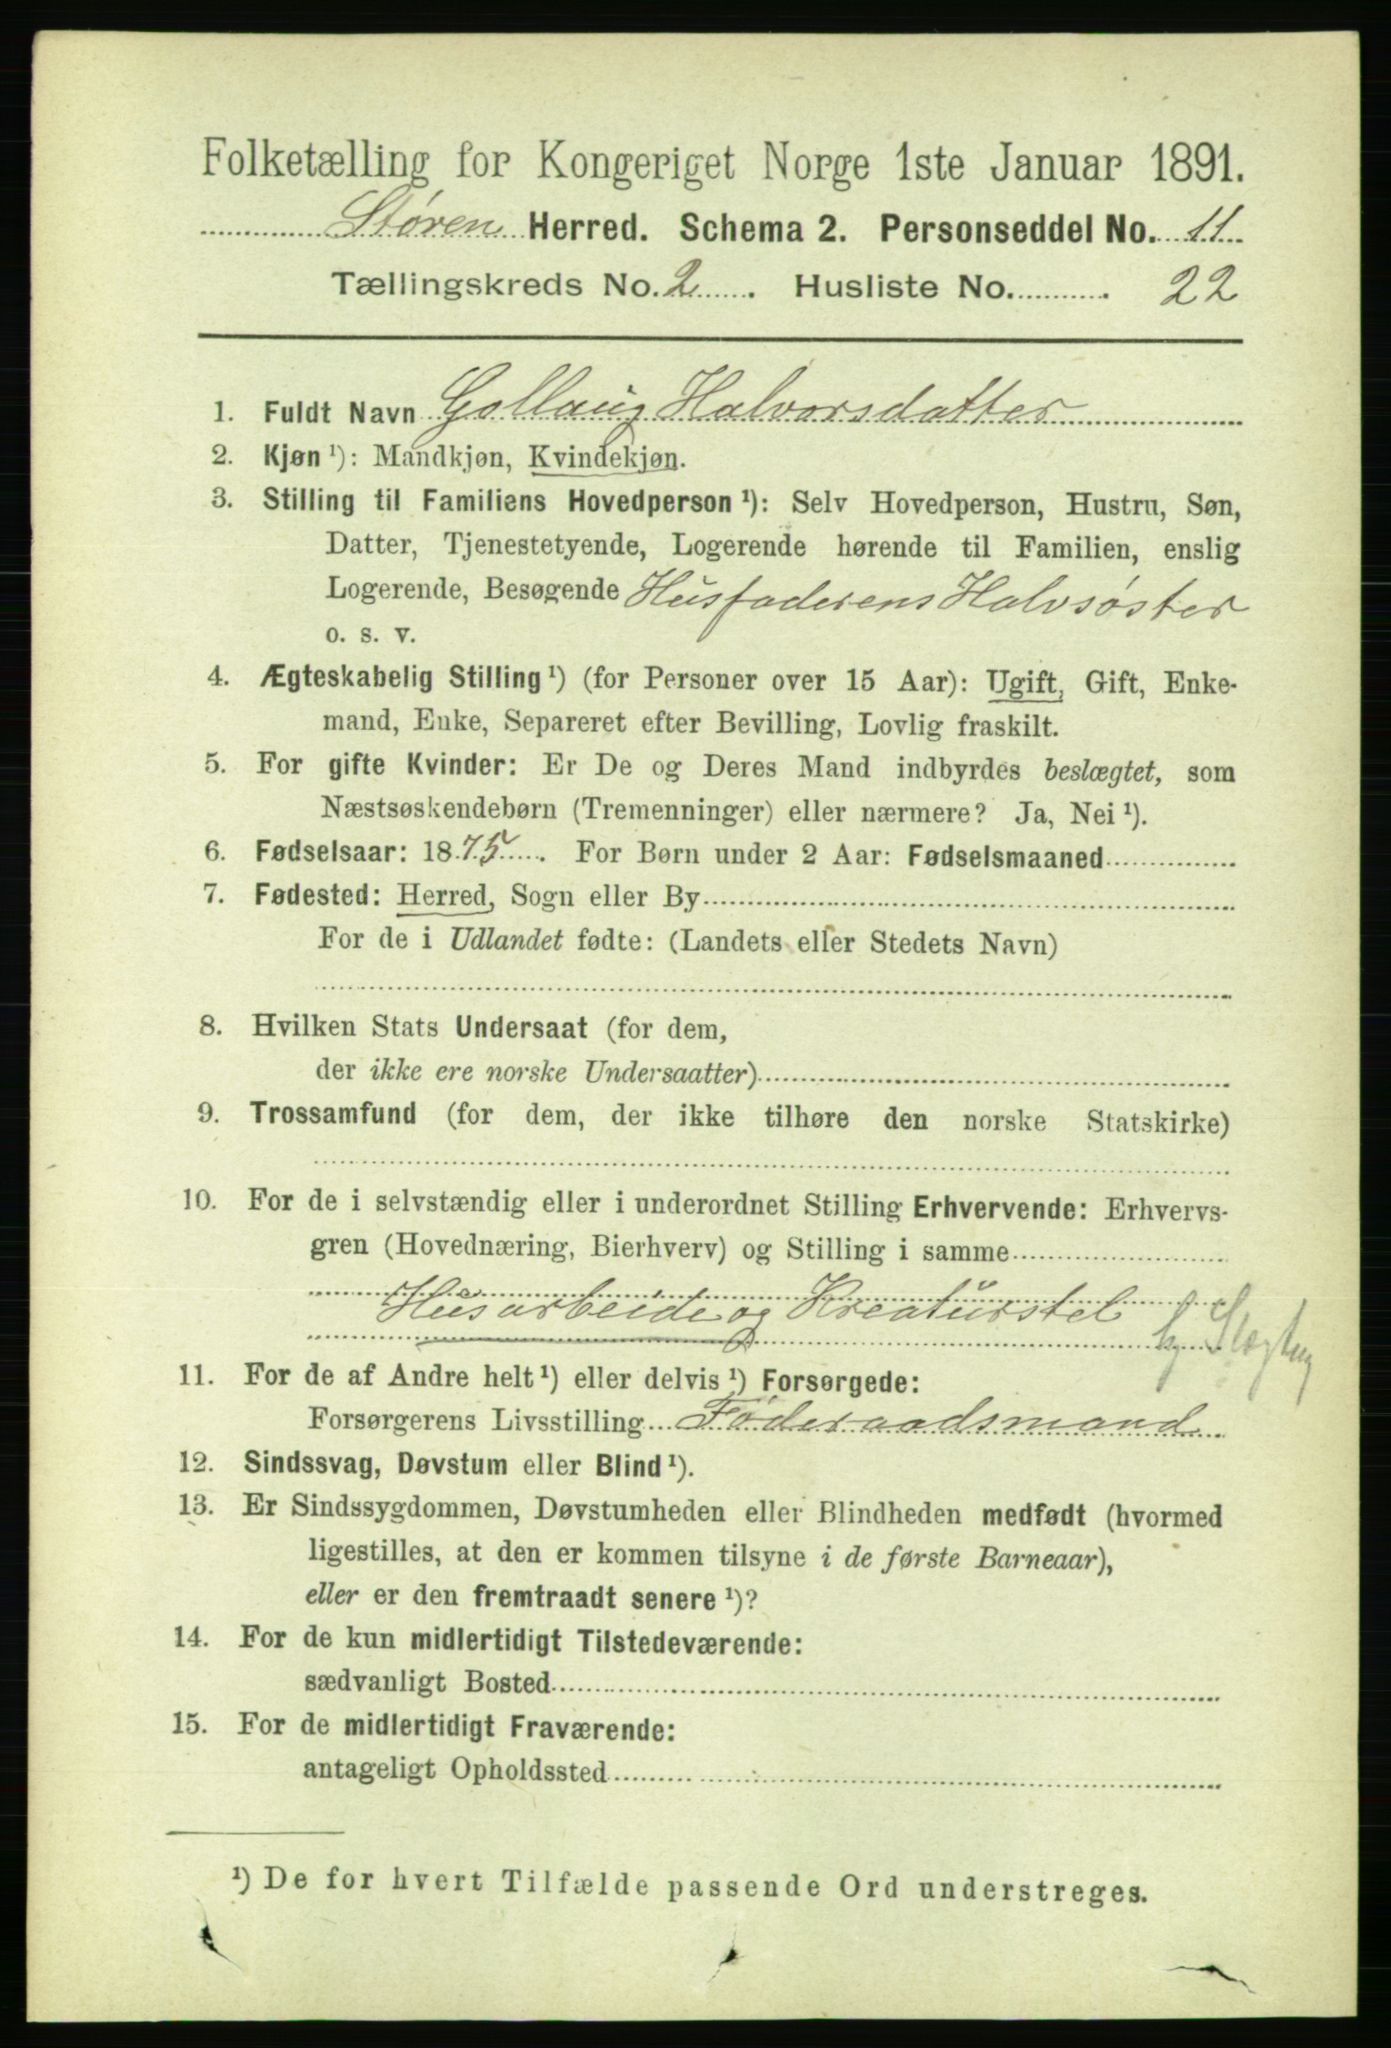 Folketælling for Kongeriget Norge 1ste Januar 1891.
Støren Herred. Schema 2. Personseddel No. 11
Tællingskreds No. 2. Husliste No. 22
1. Fuldt Navn Gollaug Halvorsdatter
2. Kjøn ¹): Mandkjøn, Kvindekjøn.
3. Stilling til Familiens Hovedperson ¹): Selv Hovedperson, Hustru, Søn,
Datter, Tjenestetyende, Logerende hørende til Familien, enslig
Logerende, Besøgende Husfaderens Halvsøster
o. s. v.
4. Ægteskabelig Stilling ¹) (for Personer over 15 Aar): Ugift, Gift, Enke-
mand, Enke, Separeret efter Bevilling, Lovlig fraskilt.
5. For gifte Kvinder: Er De og Deres Mand indbyrdes beslægtet, som
Næstsøskendebørn (Tremenninger) eller nærmere? Ja, Nei ¹).
6. Fødselsaar: 1875. For Børn under 2 Aar: Fødselsmaaned
7. Fødested: Herred, Sogn eller By
For de i Udlandet fødte: (Landets eller Stedets Navn)
8. Hvilken Stats Undersaat (for dem,
der ikke ere norske Undersaatter)
9. Trossamfund (for dem, der ikke tilhøre den norske Statskirke)
10. For de i selvstændig eller i underordnet Stilling Erhvervende: Erhvervs-
gren (Hovednæring, Bierhverv) og Stilling i samme
Husarbeide og Kreaturstel
hj Slegtng
11. For de af Andre helt ¹) eller delvis ¹) Forsørgede:
Forsørgerens Livsstilling Føderaadsmand
12. Sindssvag, Døvstum eller Blind ¹).
13. Er Sindssygdommen, Døvstumheden eller Blindheden medfødt (hvormed
ligestilles, at den er kommen tilsyne i de første Barneaar),
eller er den fremtraadt senere ¹)?
14. For de kun midlertidigt Tilstedeværende:
sædvanligt Bosted
15. For de midlertidigt Fraværende:
antageligt Opholdssted
¹) De for hvert Tilfælde passende Ord understreges.